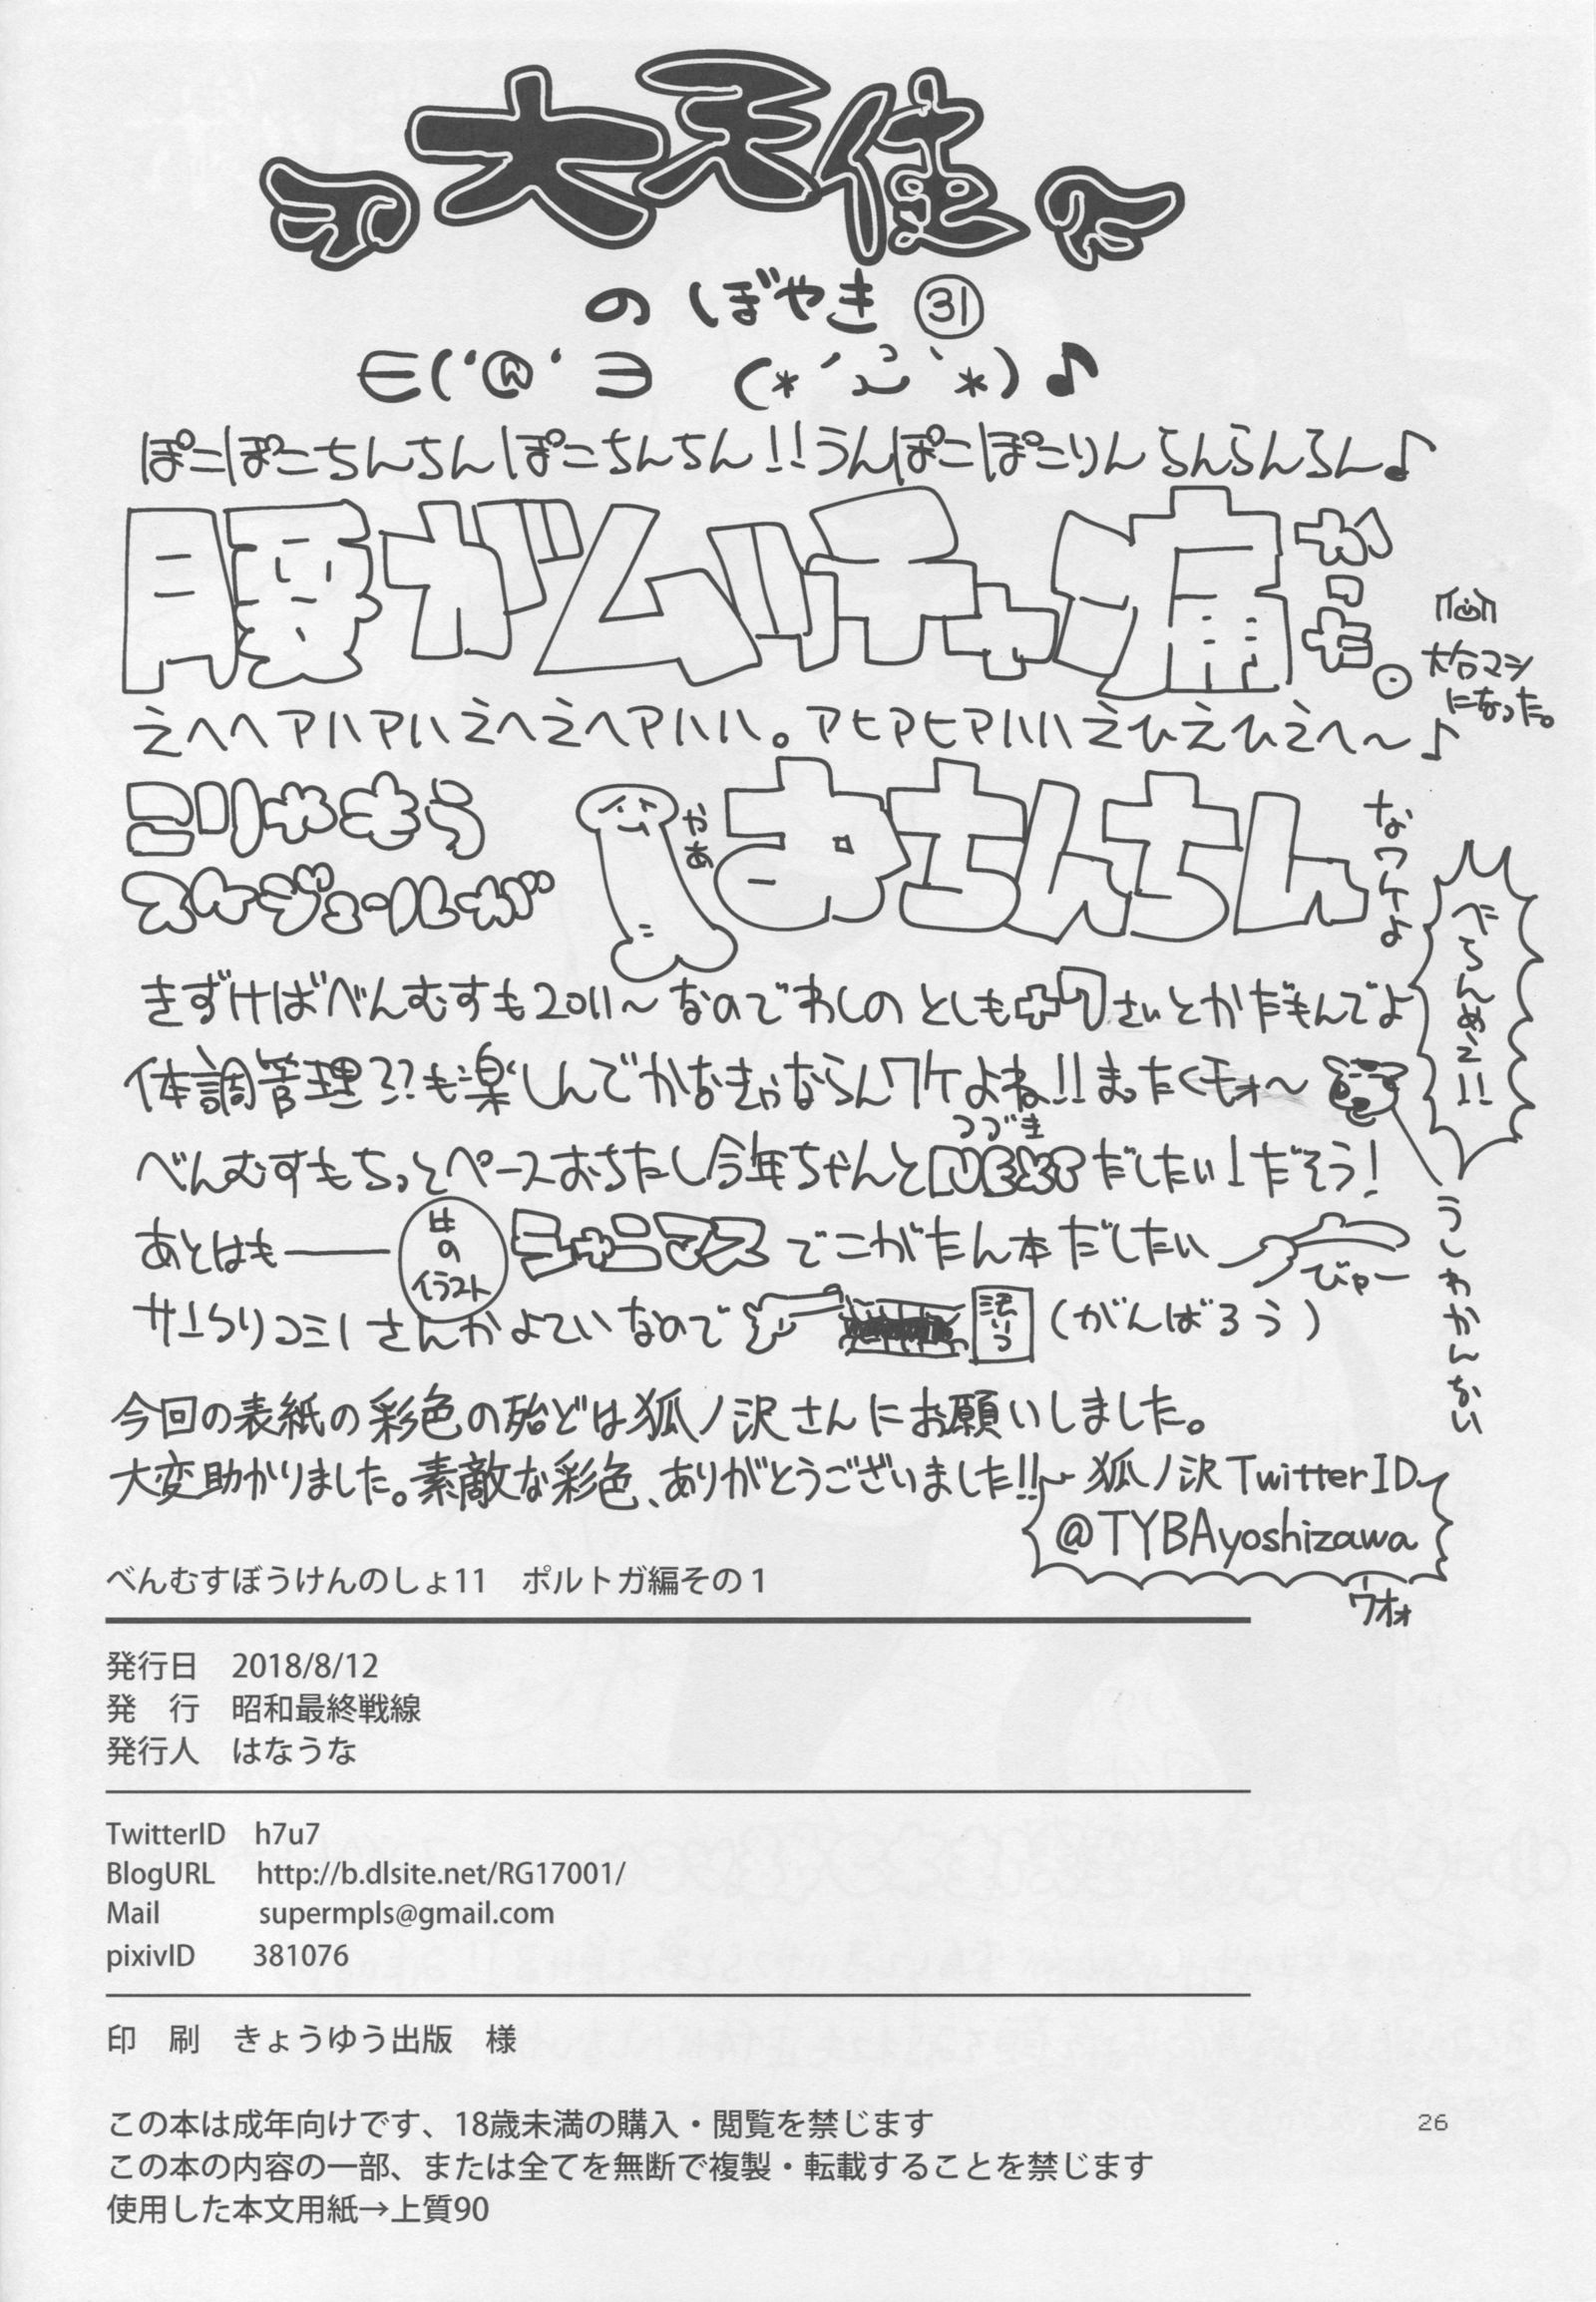 大天使
のぼやき ㉛
∈('@'∋ (*´ω｀*)♪
ぽこぽこちんちんぽこちんちん!!うんぽこぽこりんらんらんらん♪
腰がムッチャ痛かった。
大分マシ
になった。
えへへアハアハえへえへアハハハ。アヒアヒアハハえひえひえへ～♪
こりゃもう
スケジュールが
やあ
おちんちん
なワケよ
べらんめェ!!
きずけばべんむすも2011～なのでわしのとしも さいとかだもんでよ
体調管理??も楽しんでかなきゃならんワケよね!!まったくモォ～
べんむすもちっとペースおちたし今年ちゃんとNEXTだしたい!だそう!
つづき
うしわかんない
あとはもー
のイラスト
シャニマスでこがたん本だしたい
びゃー
サークリコミ1さんかよていなので
(がんばろう)
今回の表紙の彩色の殆どは狐ノ沢さんにお願いしました。
大変助かりました。素敵な彩色、ありがとうございました!!
狐ノ沢TwitterID
@TYBAyoshizawa
ウオォ
べんむすぼうけんのしょ11　ポルトガ編その1
発行日　2018/8/12
発　行　昭和最終戦線
発行人　はなうな
TwitterID　h7u7
BlogURL　http://b.dlsite.net/RG17001/
Mail　supermpls@gmail.com
pixivID　381076
印　刷　きょうゆう出版　様
この本は成年向けです、18歳未満の購入・閲覧を禁じます
この本の内容の一部、または全てを無断で複製・転載することを禁じます
使用した本文用紙→上質90
26